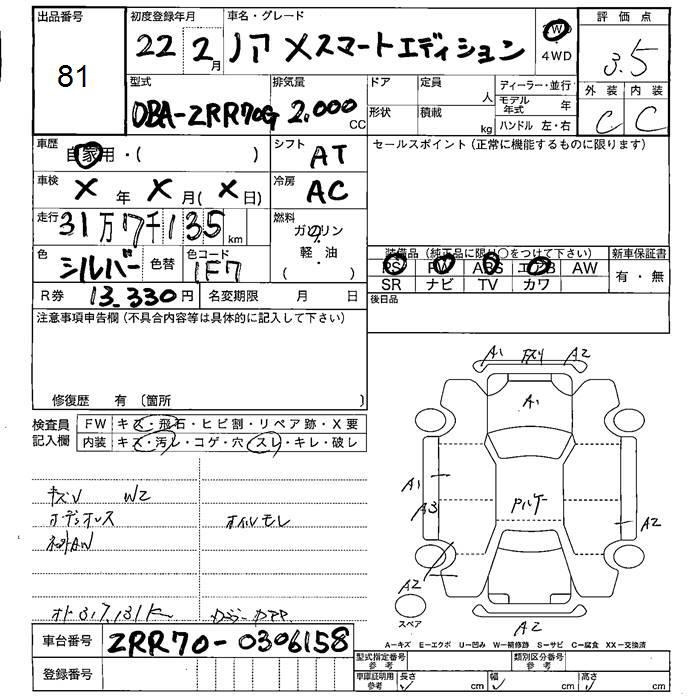 出品番号
81
初度登録年月
22 2月
車名・グレード
ノア Xスマートエディション
2WD
4WD
評価点
3.5
外装 内装
C C
型式
DBA-ZRR70G
排気量
2.000 CC
ドア
定員
人
形状
積載
kg
ディーラー・並行
モデル年式 年
ハンドル 左・右
車歴
自家用・( )
シフト
AT
セールスポイント(正常に機能するものに限ります)
車検
X 年 X 月(X日)
冷房
AC
走行
31万7千135 km
燃料
ガソリン
軽油
( )
色
シルバー
色替
色コード
1F7
装備品(純正品に限り○をつけて下さい)
PS PW ABS エアB AW
SR ナビ TV カワ
新車保証書
有・無
R券
13.330円
名変期限 月 日
後日品
注意事項申告欄(不具合内容等は具体的に記入して下さい)
修復歴 有 (箇所 )
検査員記入欄
FW キズ・飛石・ヒビ割・リペア跡・X要
内装 キズ・汚レ・コゲ・穴・スレ・キレ・破レ
W2
オーディオレス
オイルモレ
A1 A2
A1
A1
A3
A2
A2
スペア
A2
A-キズ E-エクボ U-凹み W-補修跡 S-サビ C-腐食 XX-交換済
車台番号
ZRR70-0306158
登録番号
型式指定番号 参考
類別区分番号 参考
車庫証明用 参考
長さ cm
幅 cm
高さ cm